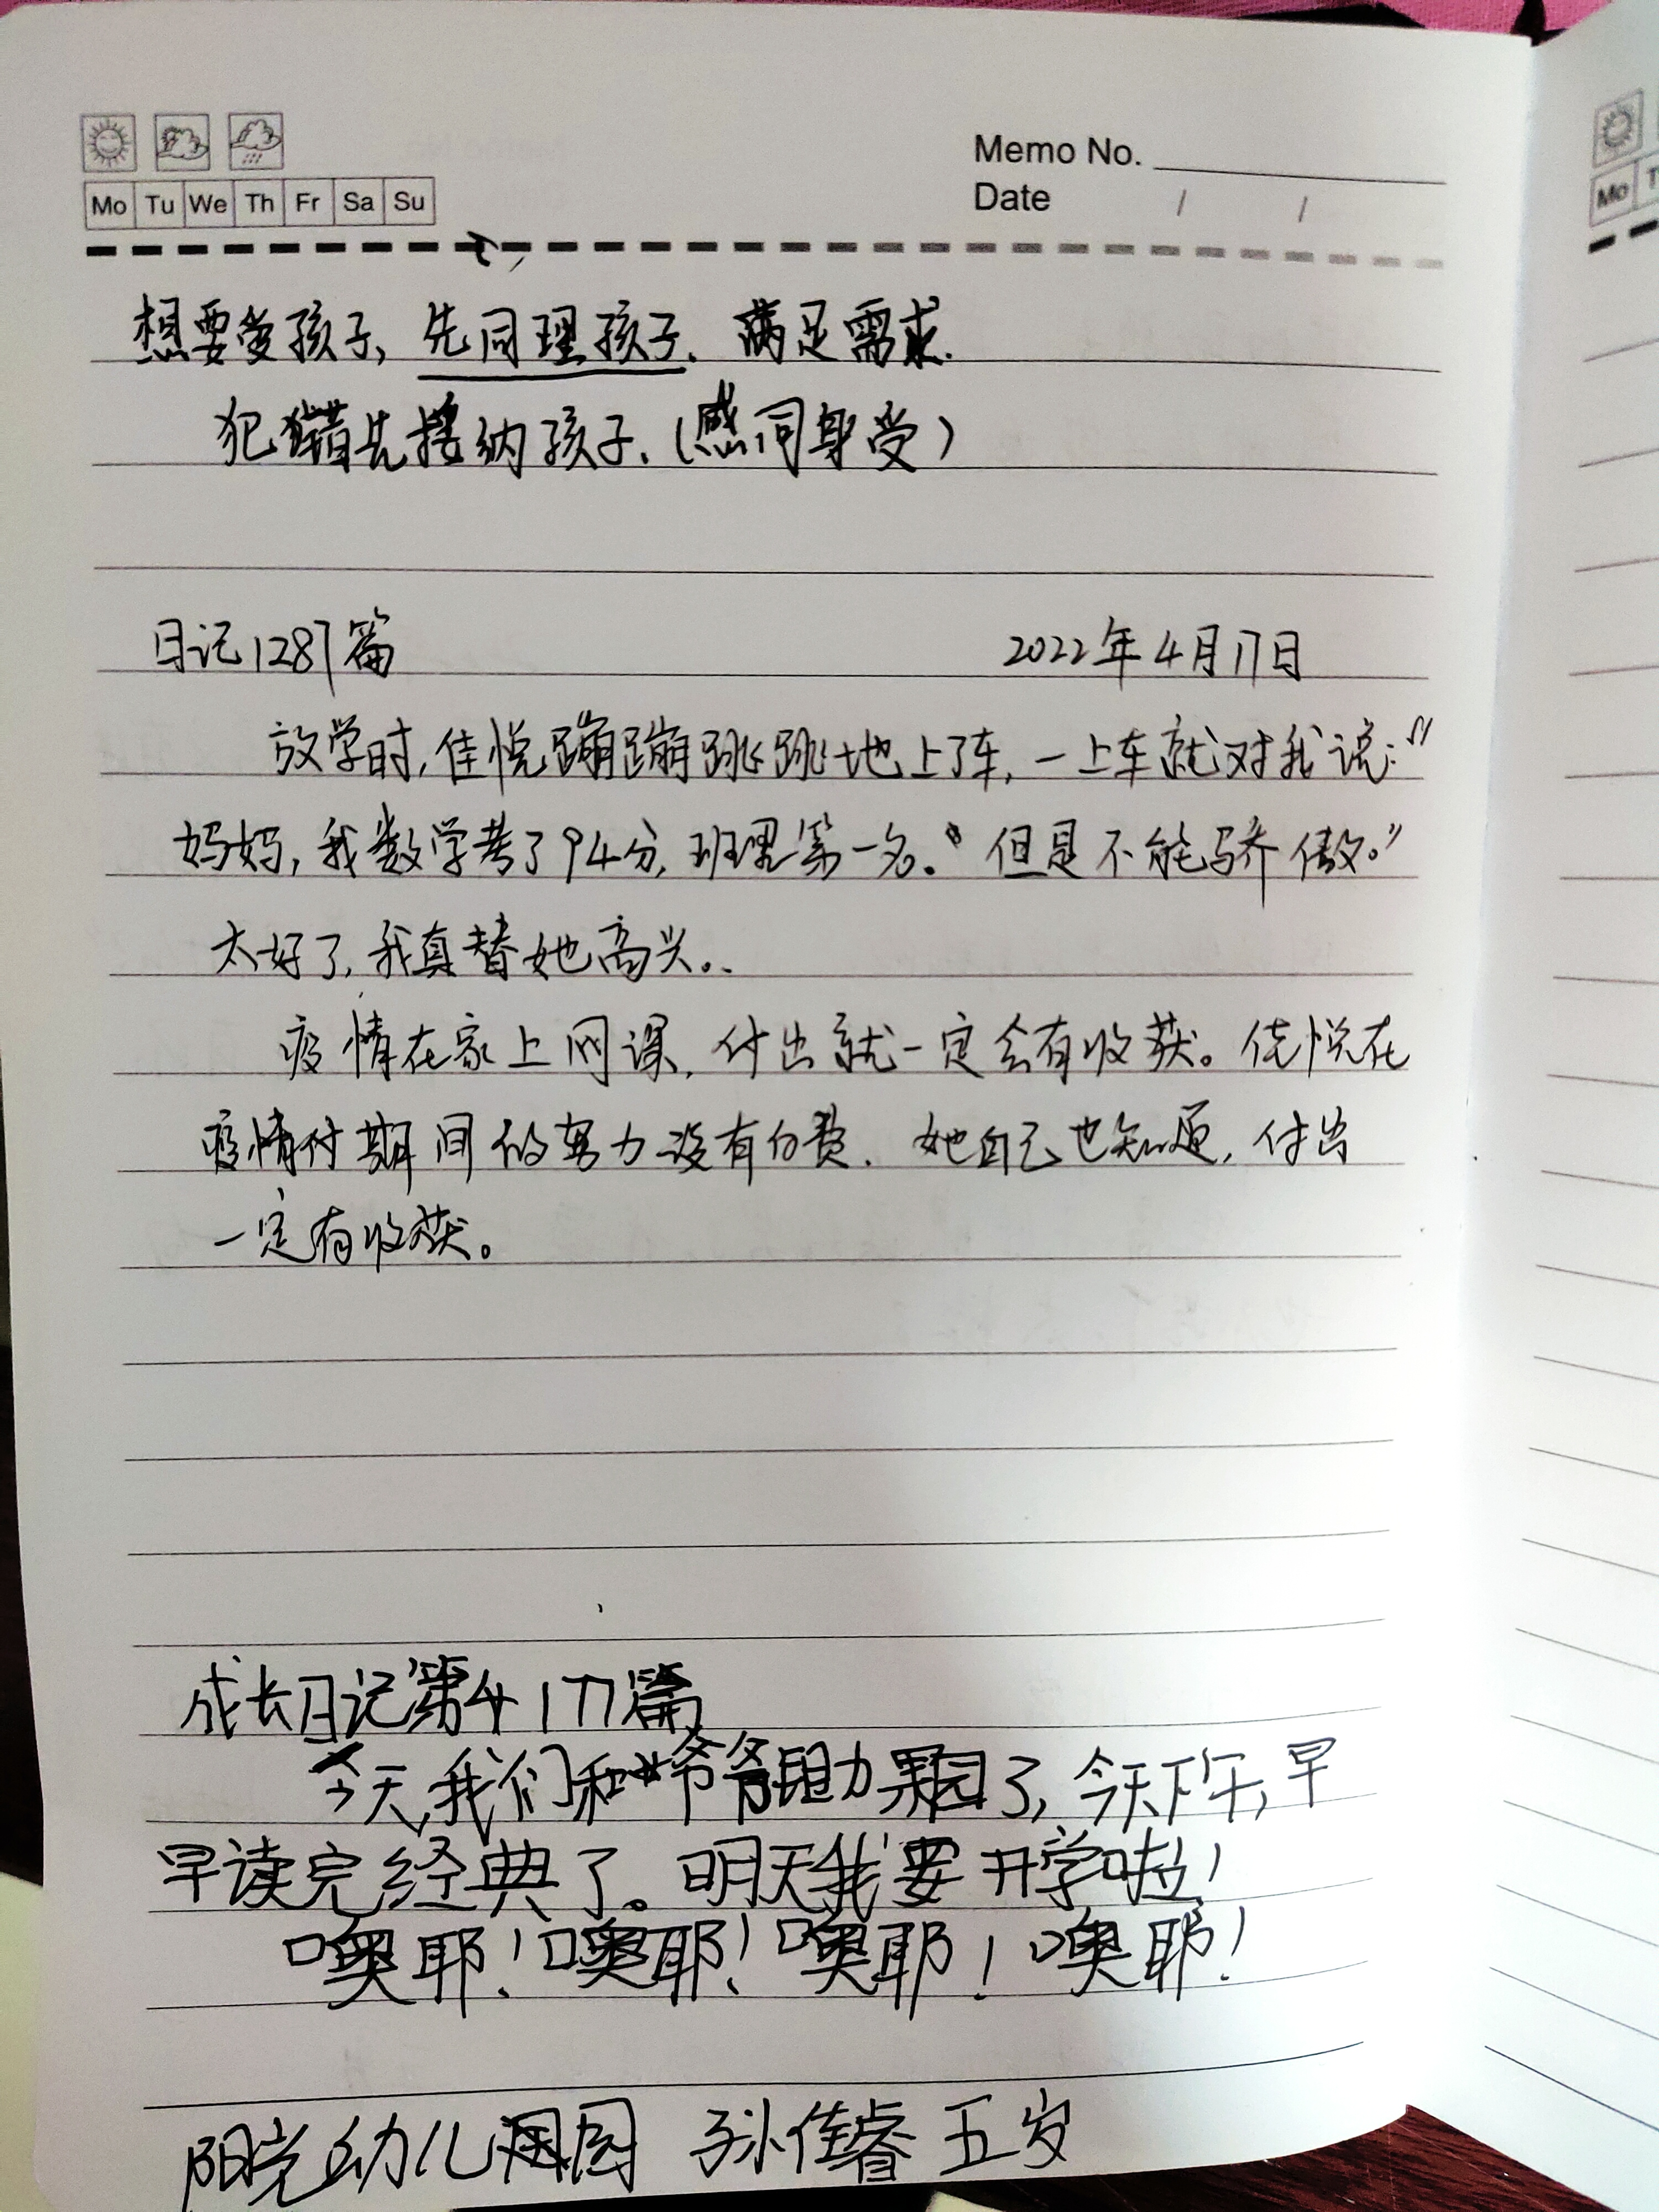 Memo No.
Mo Tu We Th Fr Sa Su
Date / /
想要爱孩子,先同理孩子.满足需求.
犯错先接纳孩子.(感同身受)
日记1287篇 2022年4月17日
放学时,佳悦蹦蹦跳跳地上了车,一上车就对我说:"
妈妈,我数学考了94分,班里第一名。但是不能骄傲。"
太好了,我真替她高兴。
疫情在家上网课,付出就一定会有收获。佳悦在
疫情付期间的努力没有白费.她自己也知道,付出
一定有收获。
成长日记第417篇
今天,我们和爷爷 果园了,今天下午,早
早读完经典了。明天我要开学啦!
噢耶!噢耶!噢耶!噢耶!
阳光幼儿园 孙佳睿 五岁
Mo